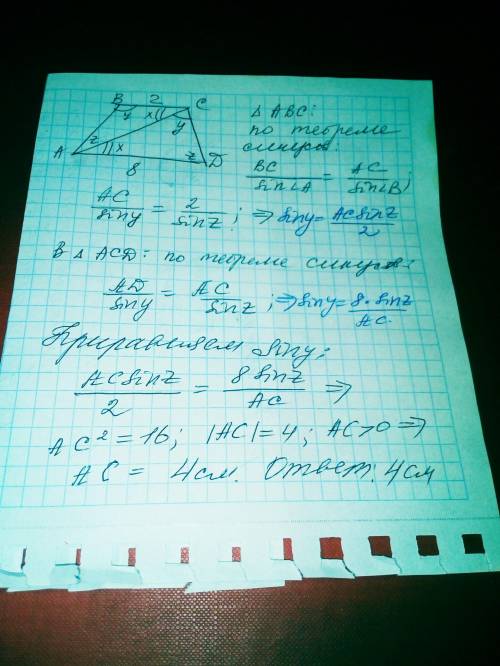 B 2 C
y x y
A z x z D
8
Δ ABC:
по теореме
синусов:
BC/sin∠A = AC/sin∠B;
AC/siny = 2/sinz; ⇒ siny = ACsinz/2
В Δ ACD: по теореме синусов:
AD/siny = AC/sinz; ⇒ siny = 8·sinz/AC
Приравняем siny:
ACsinz/2 = 8sinz/AC ⇒
AC² = 16; |AC| = 4; AC>0 ⇒
AC = 4см. Ответ: 4см